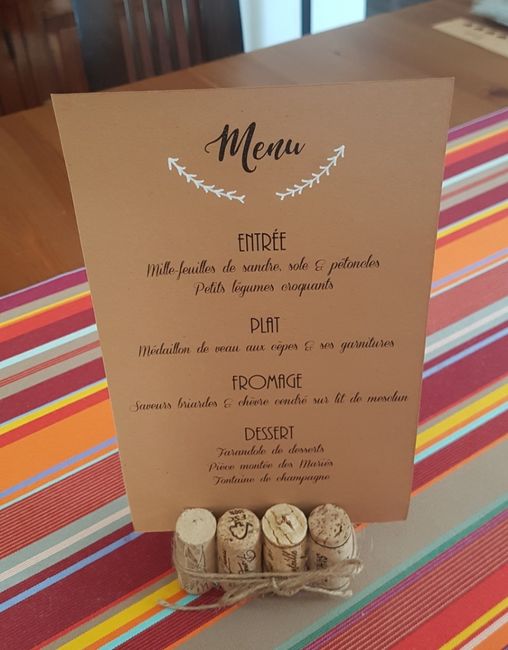 Menu
ENTRÉE
Mille-feuilles de sandre, sole & pétoncles
Petits légumes croquants
PLAT
Médaillon de veau aux cêpes & ses garnitures
FROMAGE
Saveurs briardes & chèvre cendré sur lit de mesclun
DESSERT
Farandole de desserts
Pièce montée des Mariés
Fontaine de champagne